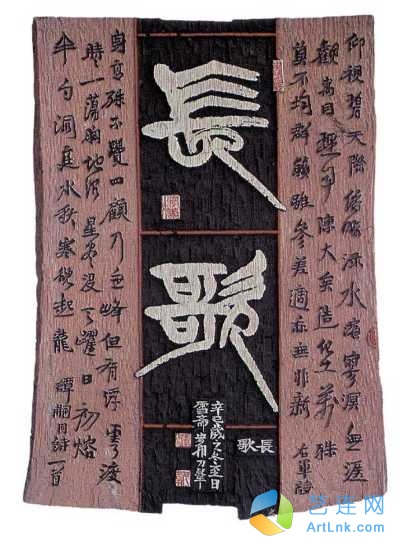 仰視碧天際俯瞰淥水濱寥闃無涯
觀寓目理自陳大矣造化工萬殊
莫不均群籟雖參差適我無非新
右軍詩
長歌
長歌
辛巳歲之冬至日
雪齋
身高殊不覺四顧乃無峰但有浮雲渡
時時一蕩胸地沉星盡沒天躍日初熔
半勺洞庭水秋寒欲起龍 譚嗣同詩一首
艺连网
ArtLnk.com